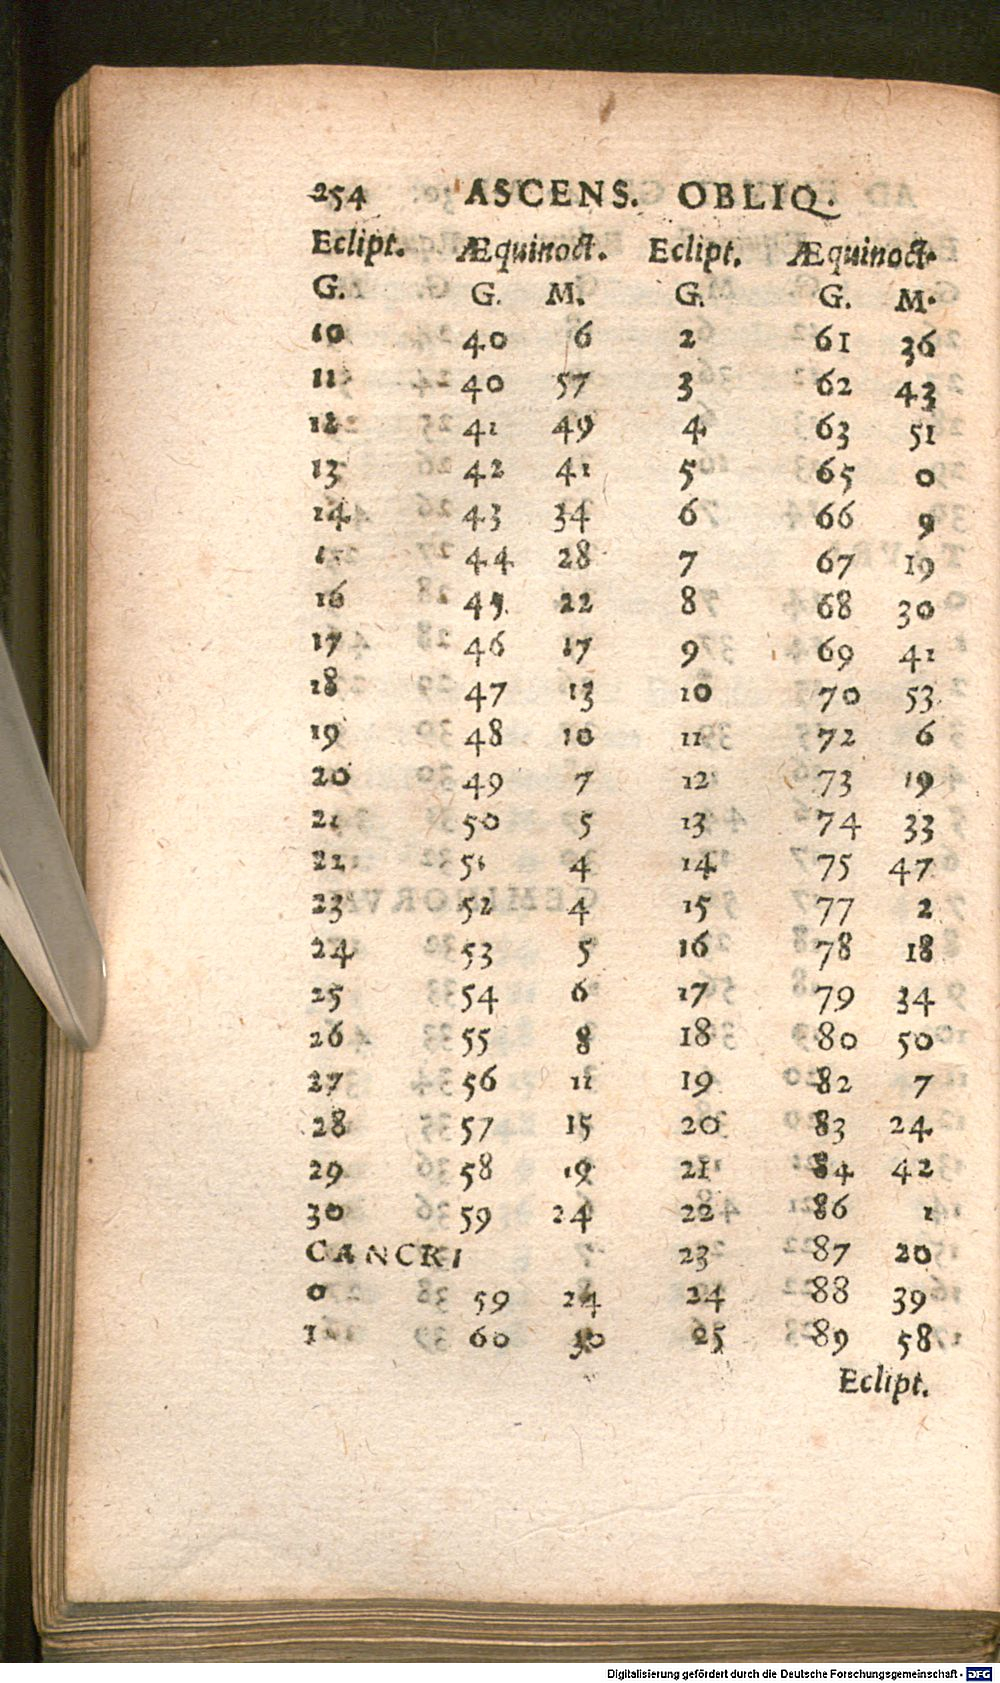 254 ASCENS. OBLIQ.
Eclipt. Æquinoct. Eclipt. Æquinoct.
G. G. M. G. G. M.
10 40 6 2 61 36
11 40 57 3 62 43
12 41 49 4 63 51
13 42 41 5 65 0
14 43 34 6 66 9
44 28 7 67 19
16 45 22 8 68 30
17 46 17 9 69 41
18 47 13 10 70 53
19 48 10 11 72 6
20 49 7 12 73 19
21 50 5 13 74 33
22 51 4 14 75 47
23 52 4 15 77 2
24 53 5 16 78 18
25 54 6 17 79 34
26 55 8 18 80 50
27 56 11 19 82 7
28 57 15 20 83 24
29 58 19 21 84 42
30 59 24 22 86 1
CANCRI 23 87 20
0 59 24 24 88 39
1 60 30 25 89 58
Eclipt.
Digitalisierung gefördert durch die Deutsche Forschungsgemeinschaft - DFG